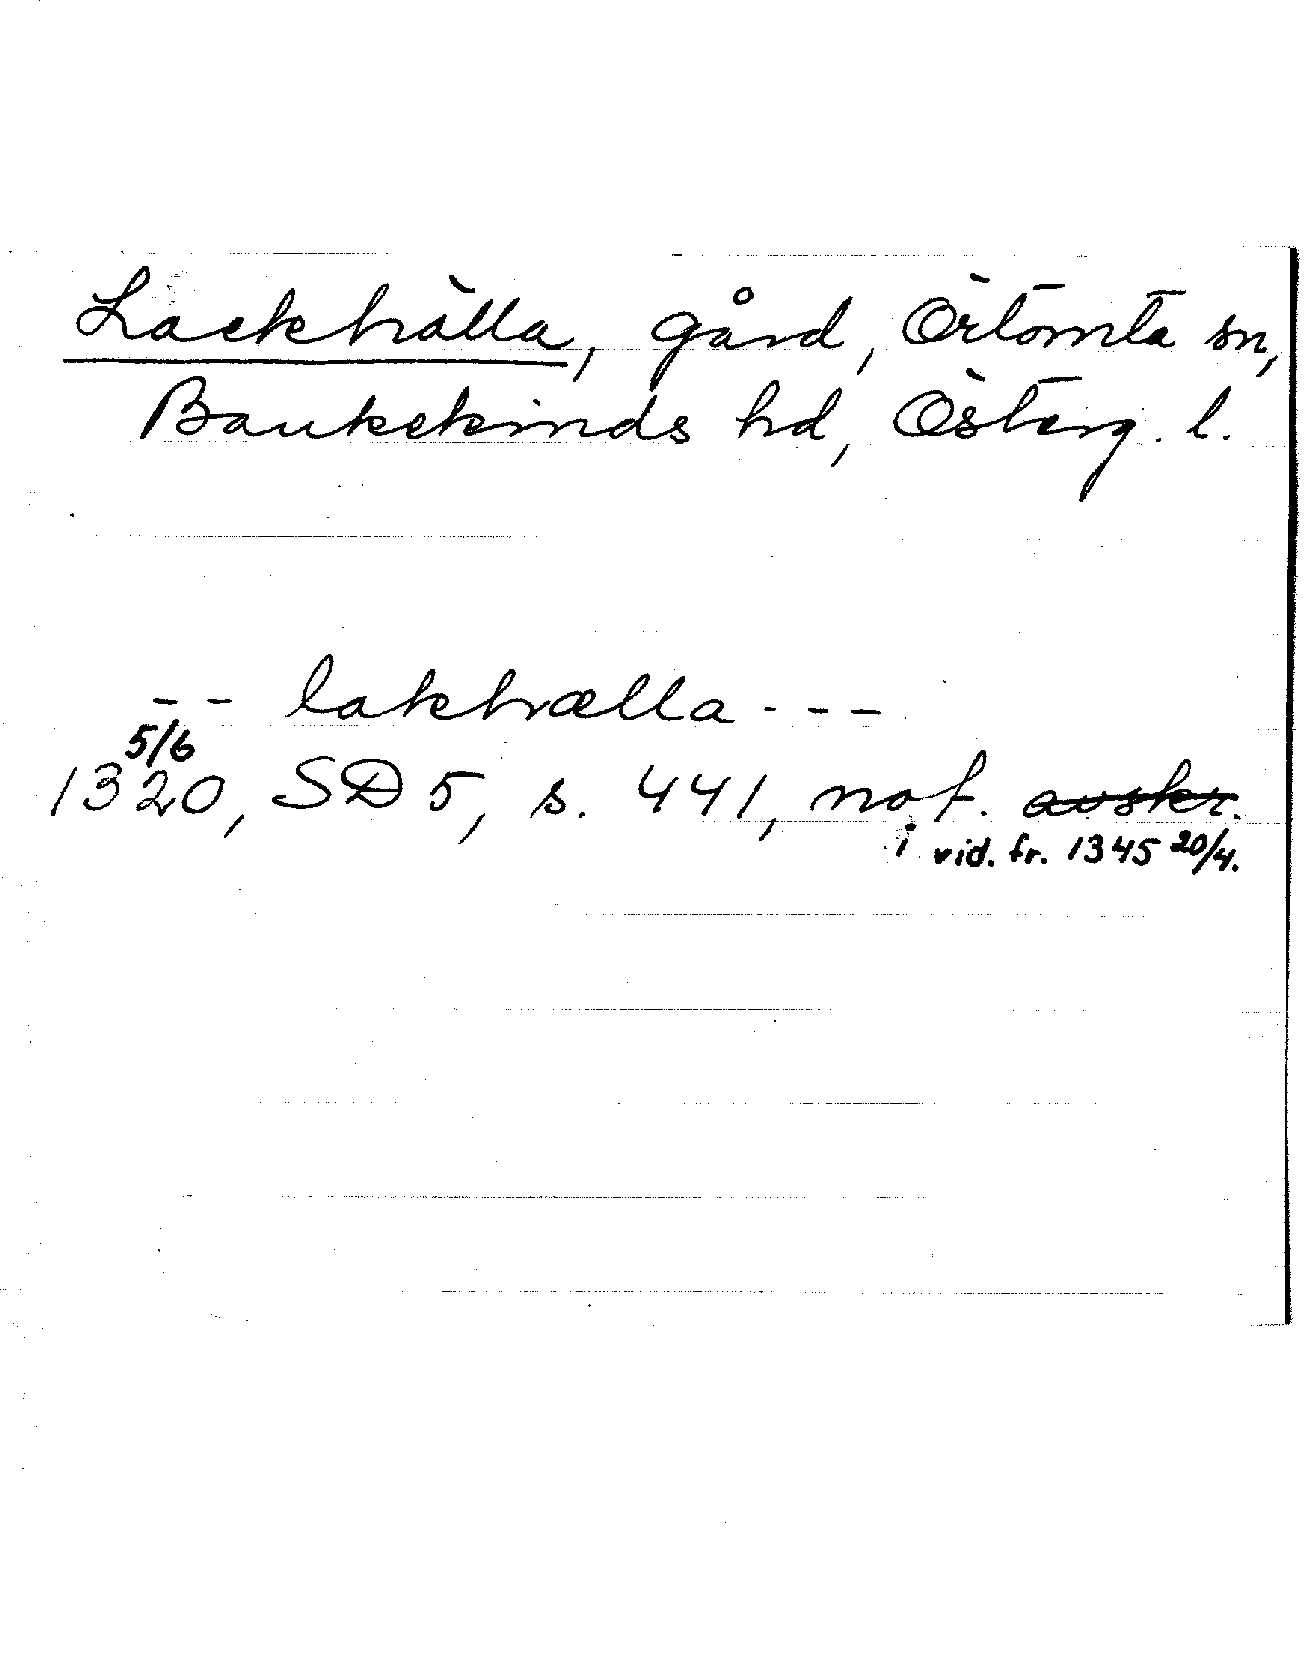 Lackhälla, gård, Örtomta sn,
Bankekinds hd, Österg. l.
-- lakhælla ---
5/6
1320, SD 5, s. 441, not. avskr.
i vid. fr. 1345 20/4.